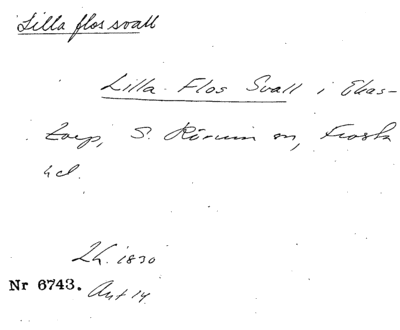 Lilla flos svall
Lilla Flos Svall i Ekas-
torp, S. Rörum sn, Frosta
hd.
Lh. 1830
Nr 6743. Akt 14